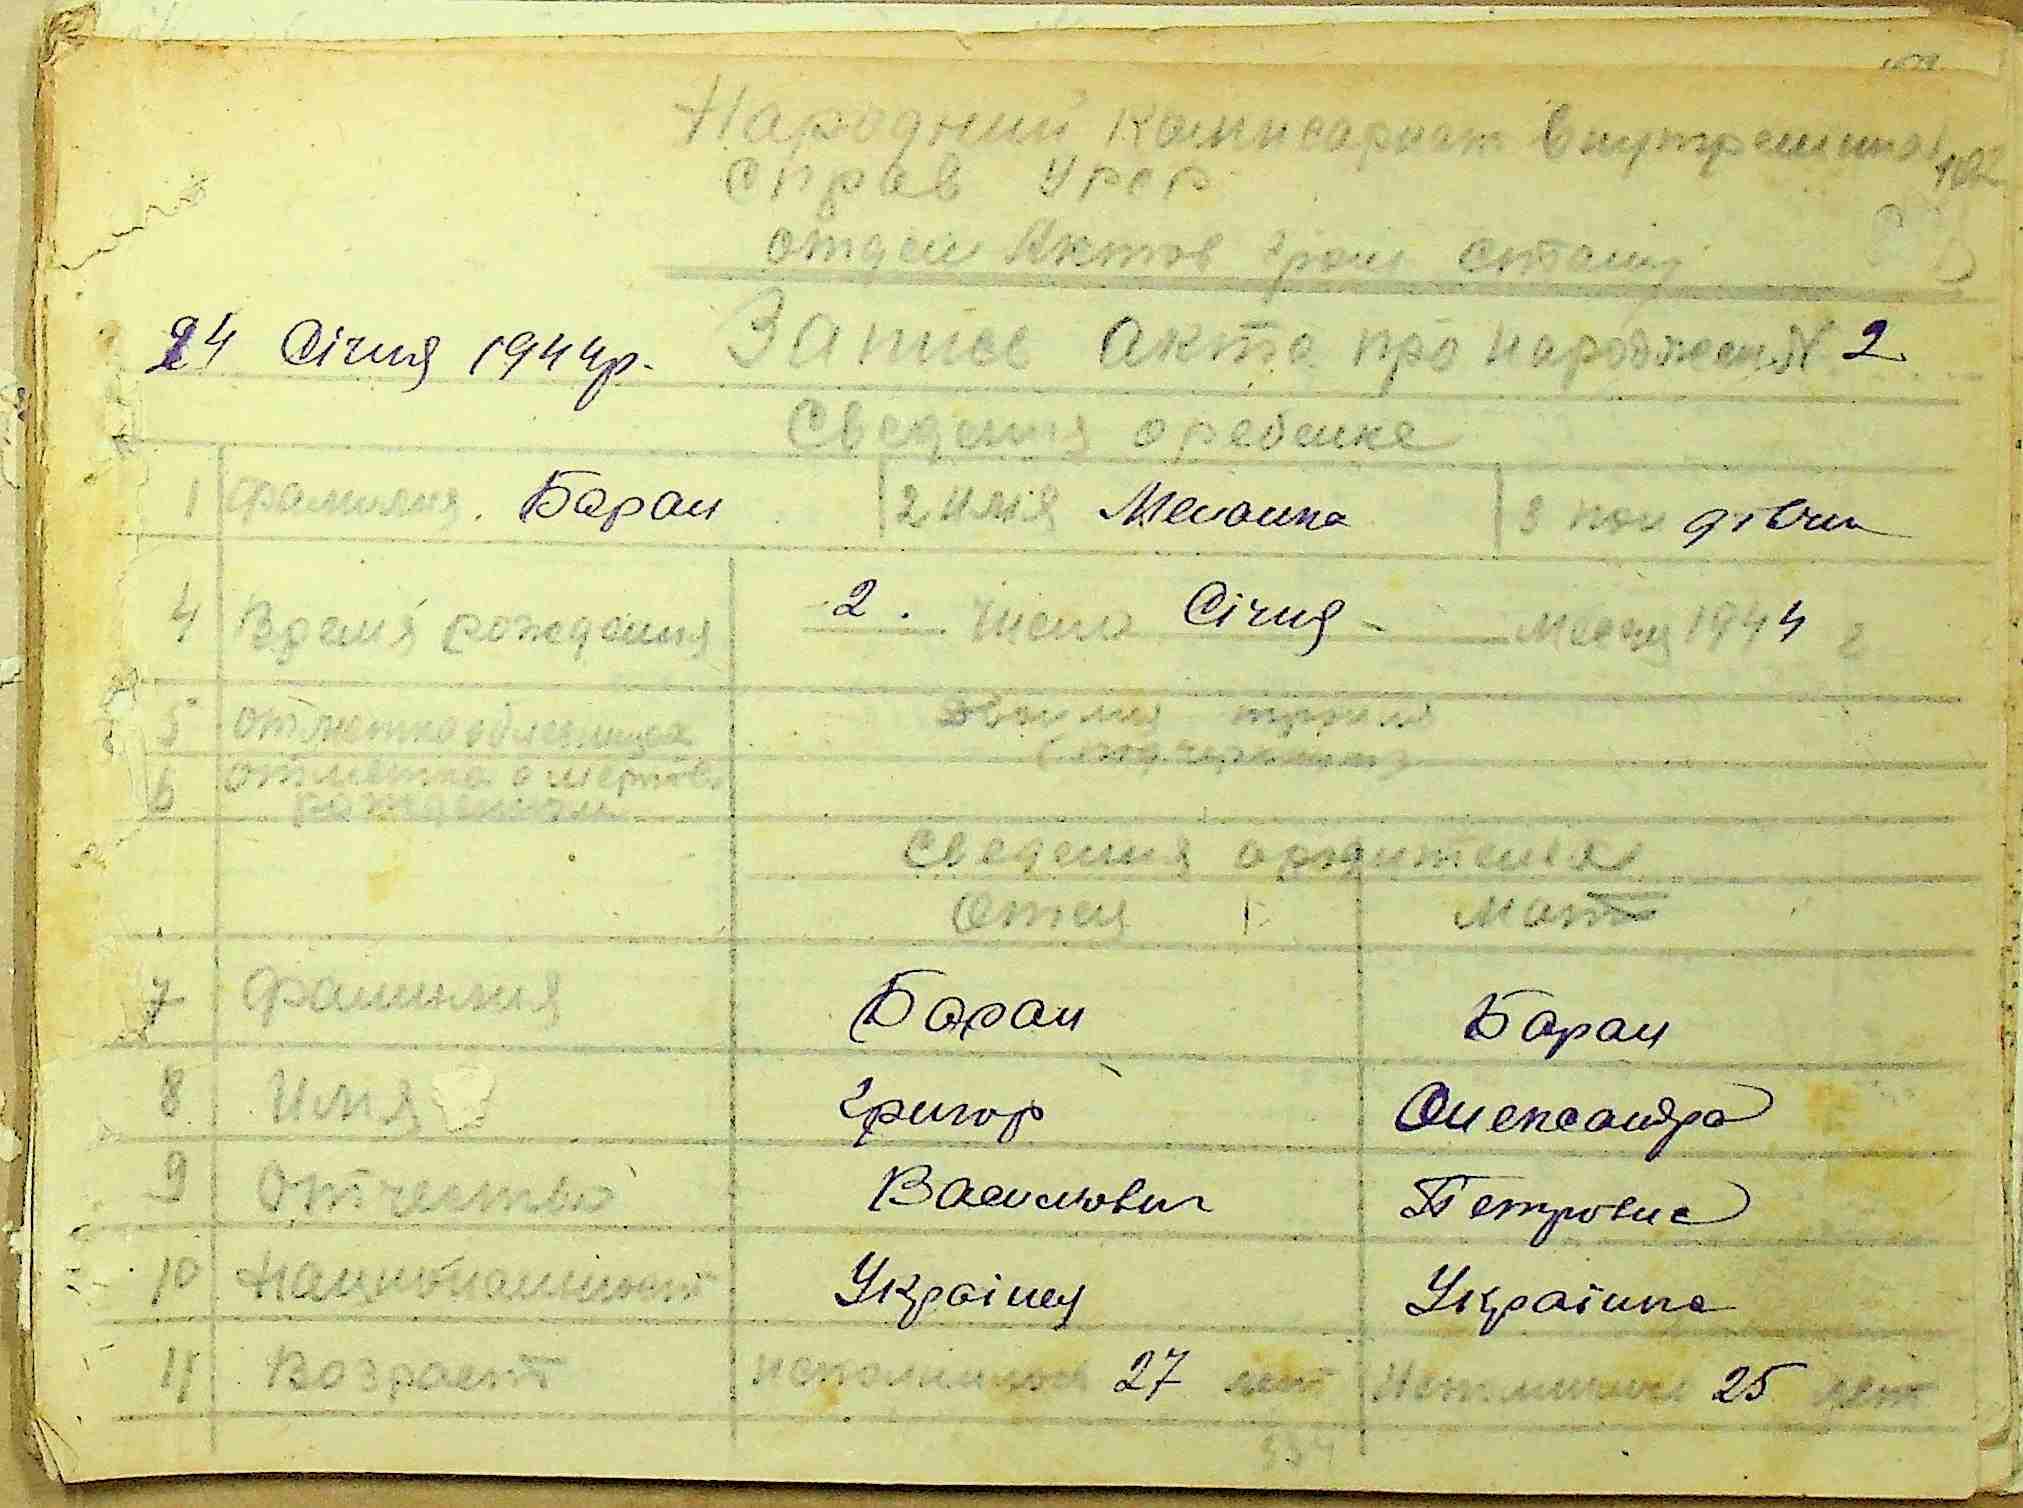 Народний комисариат внутрешних
справ УРСР
102
отдел Актов гром стану
24 Січня 1944р. Запись акта про народжени N 2
Сведения о ребенке
1 Фамилия. Баран 2 Имя Меланка 3 пол дівчи
4 Время рождения 2. число Січня месяц 1944 г
5 отметка о близнецах двойня тройня
(подчеркнуть)
6 отметка о мертво
рождении
Сведения о родителях
Отец Мать
7 Фамилия Баран Баран
8 Имя Григор Олександра
9 Отчество Васильович Петровна
10 Национальност Українец Українка
11 Возраст исполнилось 27 лет исполнилось 25 лет